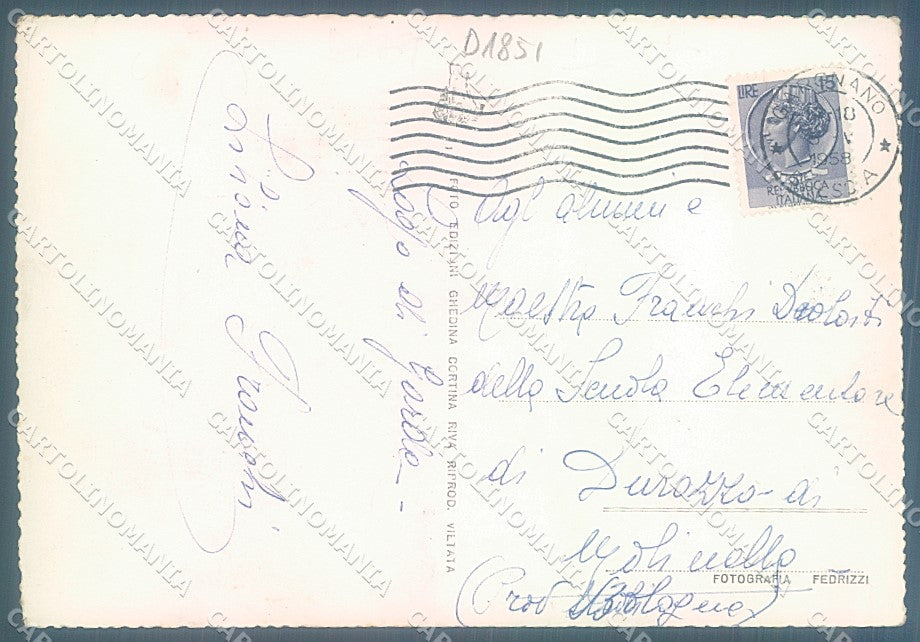 D1851
LIRE
15
POSTE
REPUBBLICA
ITALIANA
1958
Lago di Garda -
Luisa Franchi
Agl'alunni e
Maestra Franchi
della Scuola Elementare
di Durazzo di
Molinella
(Prov Bologna)
FOTO EDIZIONI GHEDINA CORTINA RIVA RIPROD. VIETATA
FOTOGRAFIA FEDRIZZI
CARTOLINOMANIA